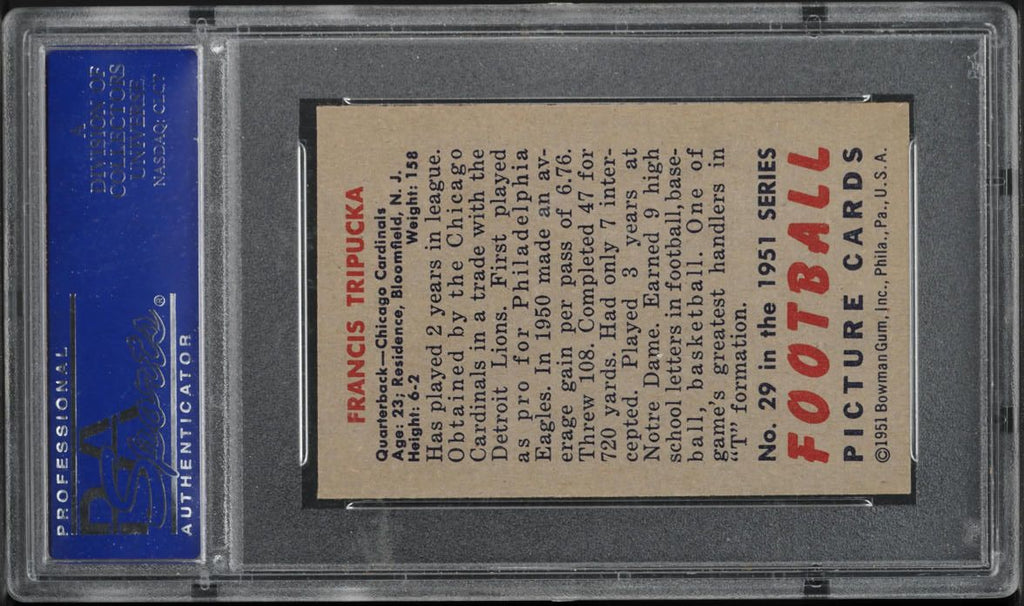 PROFESSIONAL
PSA
Sports®
AUTHENTICATOR
A
DIVISION OF
COLLECTORS
UNIVERSE
NASDAQ: CLCT
FRANCIS TRIPUCKA
Quarterback—Chicago Cardinals
Age: 23; Residence, Bloomfield, N. J.
Height: 6-2 Weight: 158
Has played 2 years in league.
Obtained by the Chicago
Cardinals in a trade with the
Detroit Lions. First played
as pro for Philadelphia
Eagles. In 1950 made an av-
erage gain per pass of 6.76.
Threw 108. Completed 47 for
720 yards. Had only 7 inter-
cepted. Played 3 years at
Notre Dame. Earned 9 high
school letters in football, base-
ball, basketball. One of
game's greatest handlers in
"T" formation.
No. 29 in the 1951 SERIES
FOOTBALL
PICTURE CARDS
©1951 Bowman Gum, Inc., Phila., Pa., U.S.A.